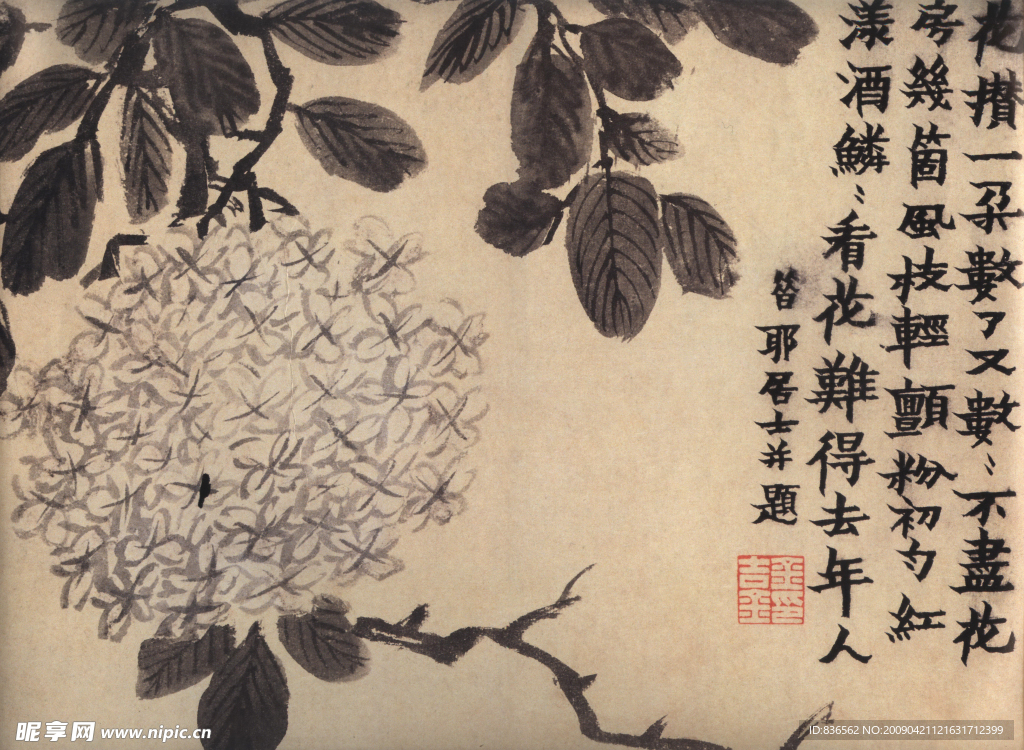 花攢一朶數了又數〻不盡花
房幾箇風枝輕顫粉初勻紅
漾酒鱗〻看花難得去年人
昔耶居士并題
金吉金印
昵享网 www.nipic.cn
ID:836562 NO:20090421121631712399